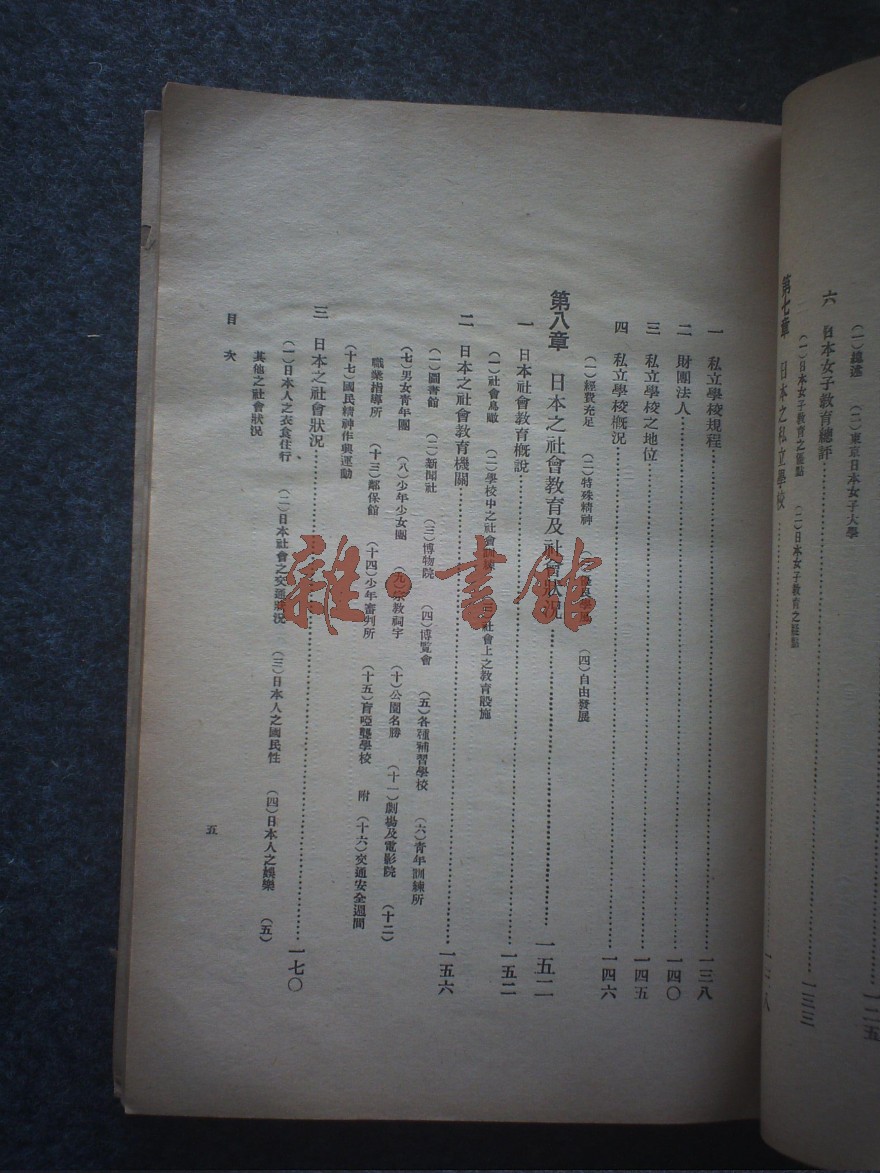 (一)總述　(二)東京日本女子大學
六　日本女子教育總評……一三三
(一)日本女子教育之優點　(二)日本女子教育之缺點
第七章　日本之私立學校……一三八
一　私立學校規程……一三八
二　財團法人……一四〇
三　私立學校之地位……一四五
四　私立學校概況……一四六
(一)經費充足　(二)特殊精神　(四)自由發展
第八章　日本之社會教育及社會狀況……一五二
一　日本社會教育概說……一五二
(一)社會鳥瞰　(二)學校中之社會　社會上之教育設施
二　日本之社會教育機關……一五六
(一)圖書館　(二)新聞社　(三)博物院　(四)博覽會　(五)各種補習學校　(六)青年訓練所
(七)男女青年團　(八)少年少女團　(九)宗教祠宇　(十)公園名勝　(十一)劇場及電影院　(十二)
職業指導所　(十三)鄰保館　(十四)少年審判所　(十五)盲啞聾學校　附　(十六)交通安全週間
(十七)國民精神作興運動
三　日本之社會狀況……一七〇
(一)日本人之衣食住行、　(二)日本社會之交通狀況　(三)日本人之國民性　(四)日本人之娛樂　(五)
其他之社會狀況
目次
五
雜·書館